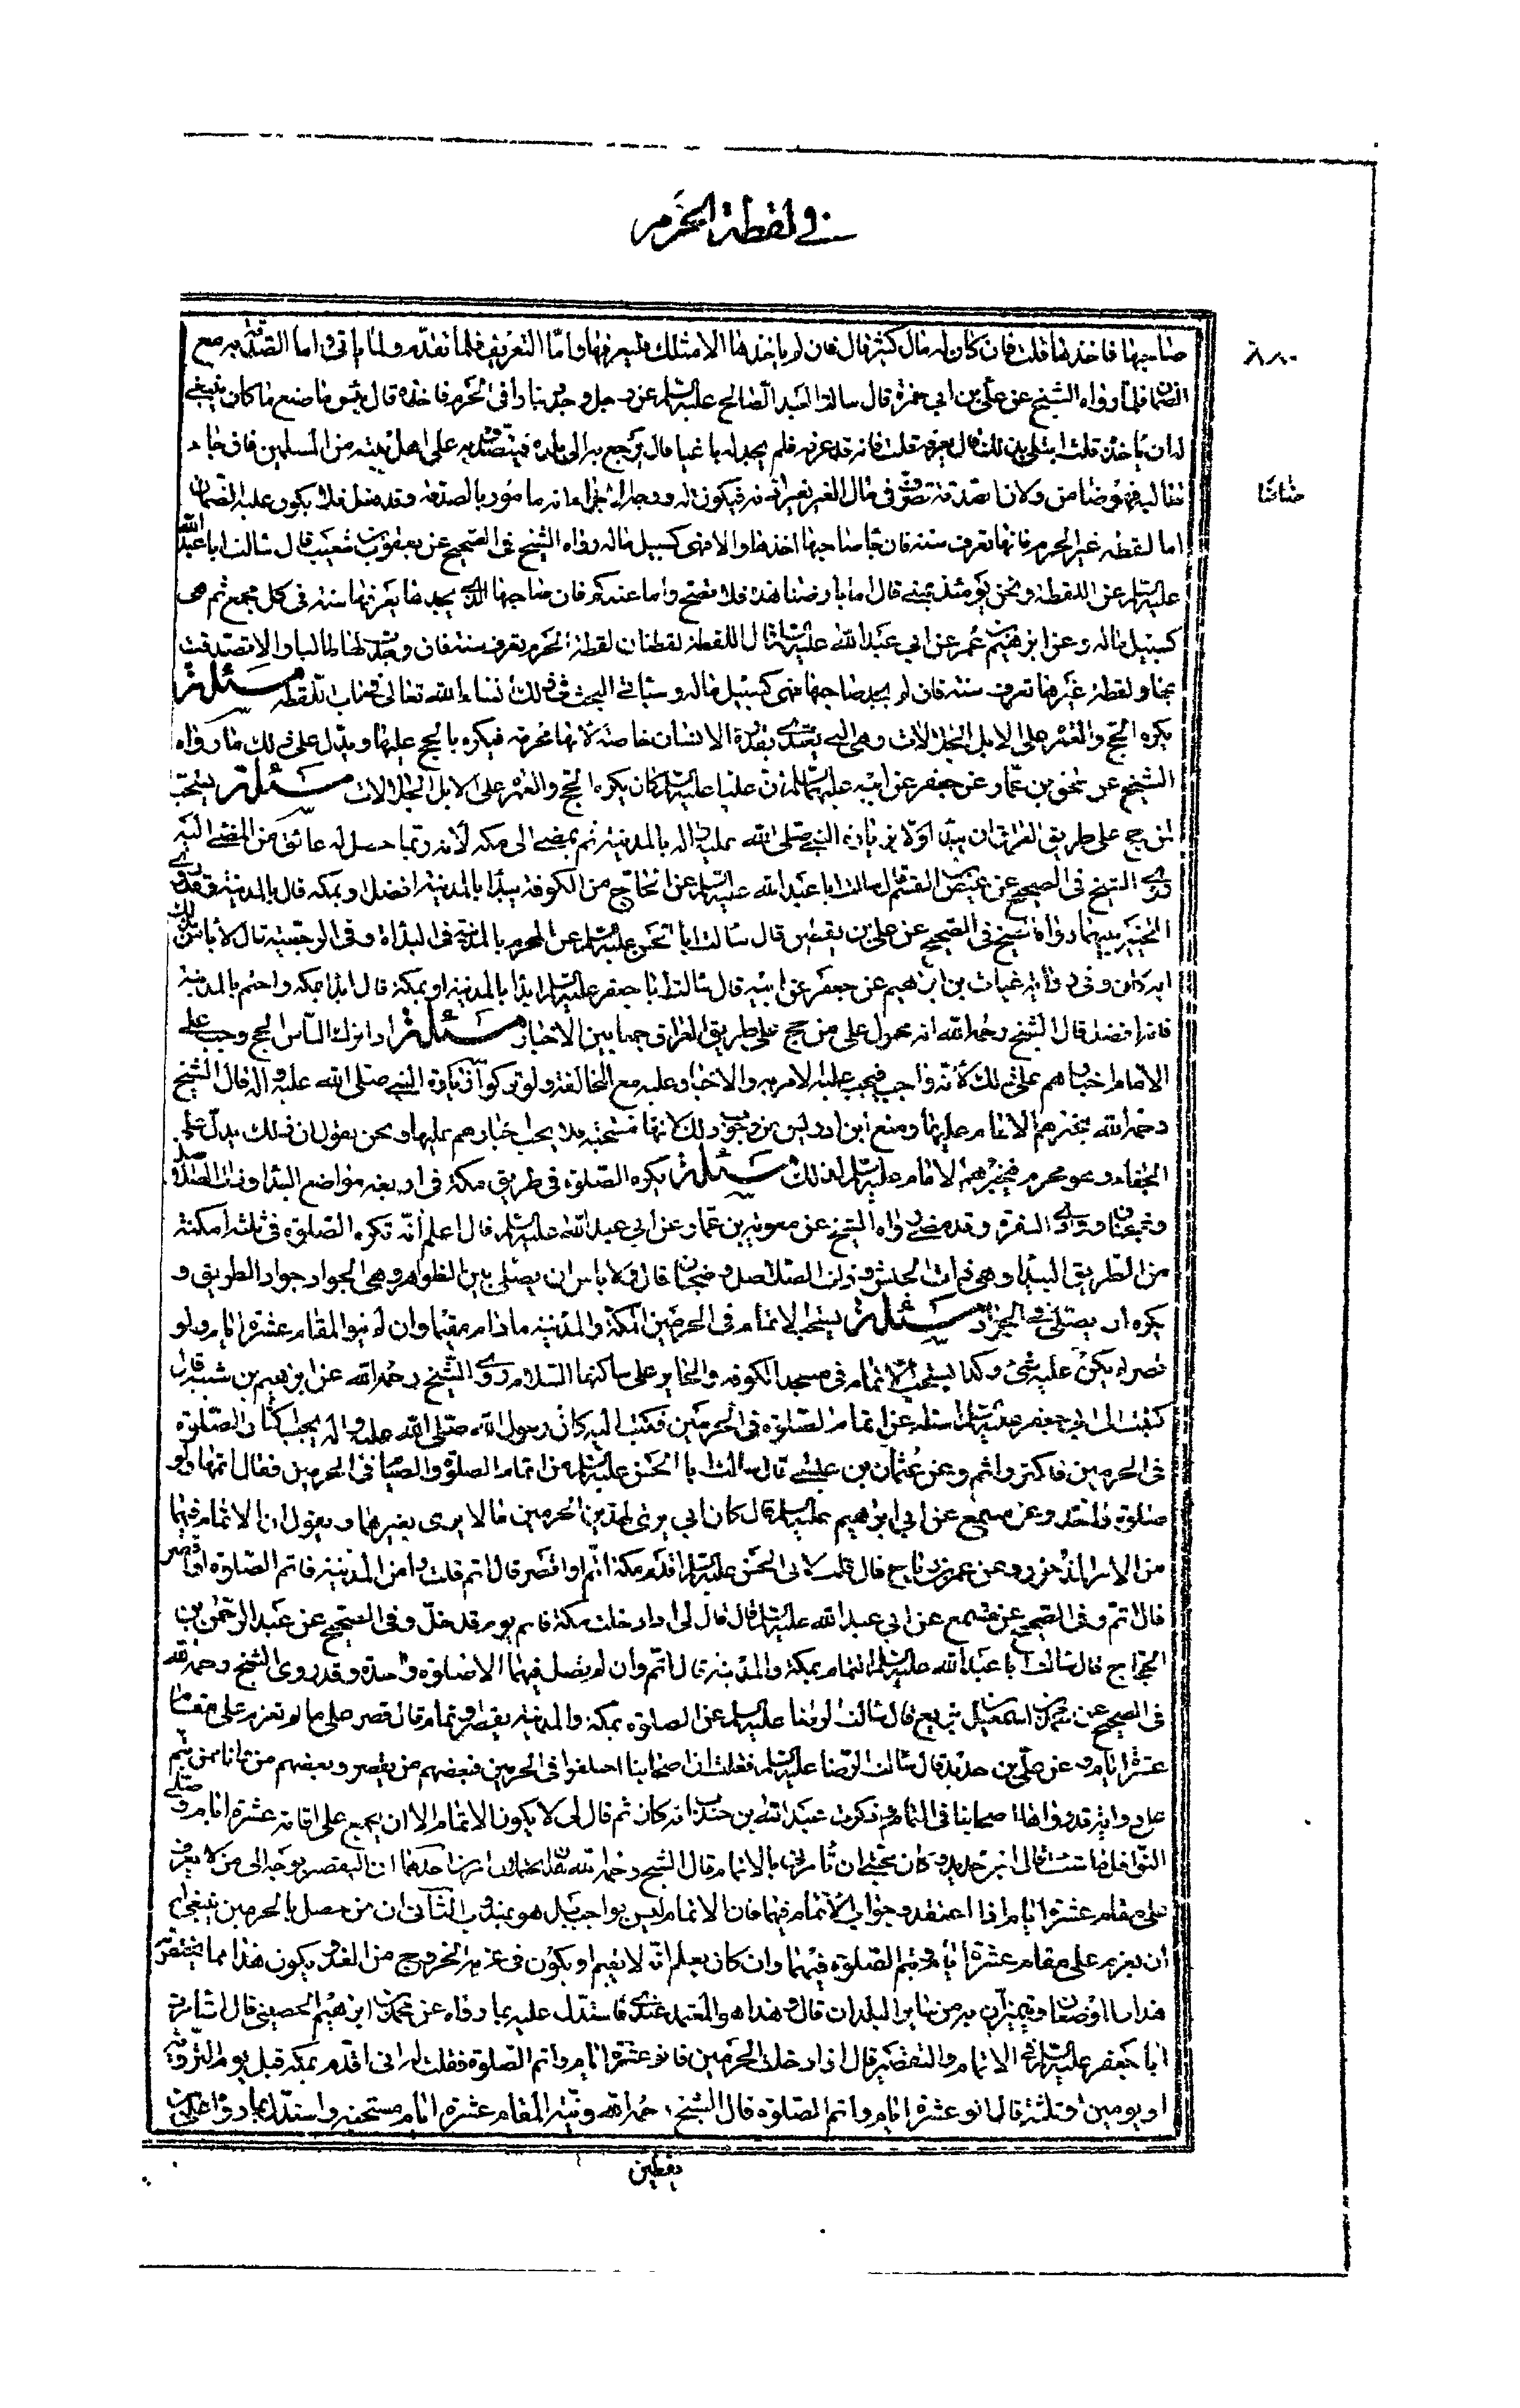 في لقطة الحرم
٨٨٠
صاحبها فاخذها قلت فان كان له مال كثير قال فان لم ياخذها الا مثلك فليعرفها واما التعريف فلما تقدم ولما ياتي واما الصدقة به مع
الضمان فلما رواه الشيخ عن علي بن ابي حمزة قال سالت العبد الصالح عليه السلم عن رجل وجد دينارا في الحرم فاخذه قال بئس ما صنع ما كان ينبغي
له ان ياخذه قلت ابتلى بذلك قال يعرفه قلت فانه قد عرفه فلم يجد له باغيا قال يرجع به الى بلده فيتصدق به على اهل بيته من المسلمين فان جاء
طالبه فهو ضامن ولان الصدقة تصرف في مال الغير بغير اذنه فيكون له
عليه الضمان
اما لقطه غير الحرم فانها تعرف سنة فان جا صاحبها اخذها والا فهي كسبيل ماله رواه الشيخ في الصحيح عن يعقوب بن شعيب قال سالت ابا عبد الله
عليه السلم عن اللقطة ونحن يومئذ بمنى قال اما بارضنا هذه فلا يصلح واما عندكم فان صاحبها الذي يجدها يعرفها سنة في كل مجمع ثم هي
كسبيل ماله وعن ابرهيم بن عمر عن ابي عبد الله عليه السلم قال اللقطة لقطتان لقطة الحرم تعرف سنة فان وجدت لها طالبا والا تصدقت
بها ولقطة غيرها تعرف سنة فان لم يجد صاحبها فهي كسبيل ماله وسياتي البحث في ذلك انشاء الله تعالى في باب اللقطه مسئلة
يكره الحج والعمرة على الابل الجلالات وهي التي يغتذى بعذرة الانسان خاصة لانها محرمة فيكره بالحج عليها ويدل على ذلك ما رواه
الشيخ عن اسحق بن عمار عن جعفر عن ابيه عليهما السلم ان عليا عليه السلم كان يكره الحج والعمرة على الابل الجلالات مسئلة يستحب
لمن حج على طريق العراق ان يبدا اولا بزيارة النبي صلى الله عليه واله بالمدينة ثم يمضي الى مكه لانه ربما حصل له عائق من المضي اليه
روى الشيخ في الصحيح عن عيص بن القسم قال سالت ابا عبد الله عليه السلم عن الحاج من الكوفة يبدا بالمدينة افضل او بمكه قال بالمدينة وقد روى
التخيير بينهما رواه الشيخ في الصحيح عن علي بن يقطين قال سالت ابا الحسن عليه السلم عن الممر بالمدينة في البداة وفي الرجعة قال لا باس بذلك
اية كان وفي رواية غياث بن ابرهيم عن جعفر عن ابيه قال سالت ابا جعفر عليه السلم ابدا بالمدينة او بمكة قال ابدا بمكه واختم بالمدينة
فانه افضل قال الشيخ رحمه الله انه محمول على من حج على طريق العراق جمعا بين الاخبار مسئلة اذا ترك الناس الحج وجب على
الامام اجبارهم على ذلك لانه واجب فيجب عليه الامر به والاجبار عليه مع المخالفة ولو تركوا زيارة النبي صلى الله عليه واله قال الشيخ
رحمه الله يجبرهم الامام عليها ومنع ابن ادريس من وجوب ذلك لانها مستحبة فلا يجب اجبارهم عليها ونحن نقول ان ذلك يدل على
الجفاء وهو محرم فيجبرهم الامام عليه السلم لذلك مسئلة يكره الصلوة في طريق مكة في اربعة مواضع البيداء وذات الصلاصل
وضجنان ووادي الشقرة وقد مضى رواه الشيخ عن معوية بن عمار عن ابي عبد الله عليه السلم قال اعلم انه تكره الصلوة في ثلثة امكنة
من الطريق البيداء وهي ذات الجيش وذات الصلاصل وضجنان قال ولا باس ان يصلى بين الظواهر وهي الجواد جواد الطريق و
يكره ان يصلى في الجواد مسئلة يستحب الاتمام في الحرمين مكة والمدينه ما دام مقيما وان لم ينو المقام عشرة ايام ولو
قصر لم يكن عليه شئ وكذا يستحب الاتمام في مسجد الكوفه والحاير على ساكنها السلام روى الشيخ رحمه الله عن ابرهيم بن شيبة قال
كتبت الى ابي جعفر عليه السلم اسئله عن اتمام الصلوة في الحرمين فكتب اليه كان رسول الله صلى الله عليه واله يحب اكثار الصلوة
في الحرمين فاكثر واتم وعن عثمان بن عيسى قال سالت ابا الحسن عليه السلم عن اتمام الصلوة والصيام في الحرمين فقال اتمها ولو
صلوة واحدة وعن مسمع عن ابي ابرهيم عليه السلم قال كان ابي يرى لهذين الحرمين ما لا يرى بغيرهما ويقول ان الاتمام فيهما
من الامر المذخور وعن عمر بن رباح قال قلت لابي الحسن عليه السلم اقدم مكة اتم او اقصر قال اتم قلت وامر المدينة فاتم الصلوة او اقصر
قال اتم وفي الصحيح عن مسمع عن ابي عبد الله عليه السلم قال قال لي اذا دخلت مكة فاتم يوم تدخل وفي الصحيح عن عبد الرحمن بن
الحجاج قال سالت ابا عبد الله عليه السلم التمام بمكة والمدينة قال اتم وان لم تصل فيهما الا صلوة واحدة وقد روى الشيخ رحمه الله
في الصحيح عن محمد بن اسمعيل بن بزيع قال سالت الرضا عليه السلم عن الصلوة بمكة والمدينة بقصر او تمام قال قصر ما لم تعزم على مقام
عشرة ايام وعن علي بن حديد قال سالت الرضا عليه السلم فقلت ان اصحابنا اختلفوا في الحرمين فبعضهم من يقصر وبعضهم من يتم وانا ممن يتم
على رواية قد رواها اصحابنا في التمام وذكرت عبد الله بن جندب انه كان ثم قال لي لا يكون الاتمام الا ان يجمع على اقامة عشرة ايام وصلى
النوافل ما شئت قال ابن حديد وكان محبتي ان تامرني بالاتمام قال الشيخ رحمه الله احدهما ان
على مقام عشرة ايام اذا اعتقد وجوب الاتمام فيهما فان الاتمام ليس بواجب بل هو مندوب الثاني ان من حصل بالحرمين ينبغي له
ان يعزم على مقام عشرة ايام ويتم الصلوة فيهما وان كان يعلم انه لا يقيم او يكون في عزمه الخروج من الغد ويكون هذا مما يختص به
هذان الموضعان ويتميزان به من سائر البلدان قال وهذا هو المعتمد عندي واستدل عليه بما رواه عن محمد بن ابرهيم الحصيني قال استامرت
ابا جعفر عليه السلم في الاتمام والتقصير قال اذا دخلت الحرمين فانو عشرة ايام واتم الصلوة فقلت له اني اقدم بمكه قبل يوم التروية
او يومين او ثلثة قال انو عشرة ايام واتم الصلوة قال الشيخ رحمه الله ونية المقام عشرة ايام مستحبة واستدل بما رواه علي بن
يقطين